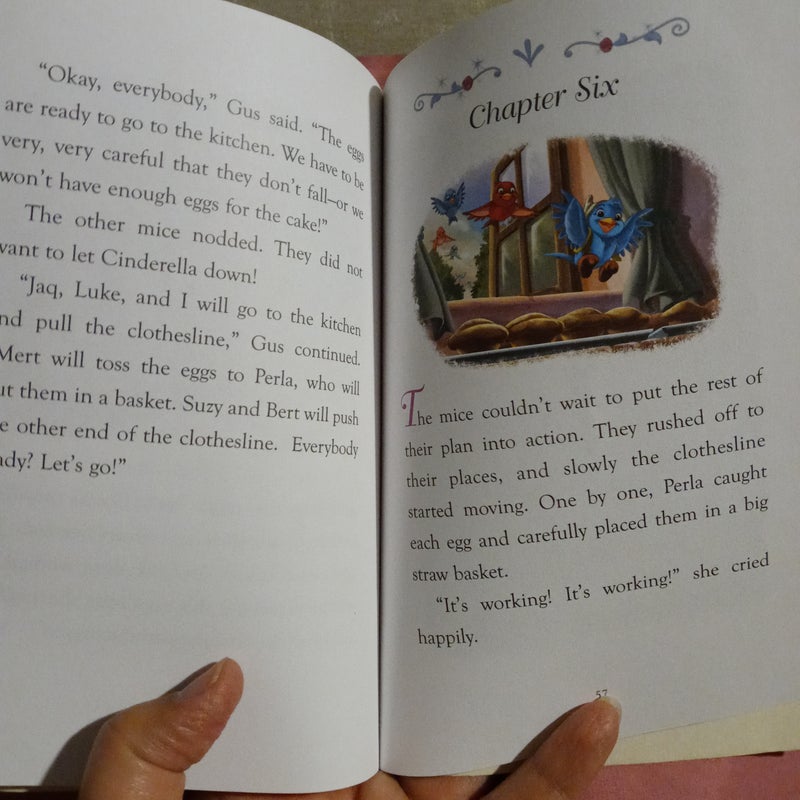 “Okay, everybody,” Gus said. “The eggs
are ready to go to the kitchen. We have to be
very, very careful that they don’t fall—or we
won’t have enough eggs for the cake!”
The other mice nodded. They did not
want to let Cinderella down!
“Jaq, Luke, and I will go to the kitchen
and pull the clothesline,” Gus continued.
Mert will toss the eggs to Perla, who will
put them in a basket. Suzy and Bert will push
the other end of the clothesline. Everybody
ready? Let’s go!”
Chapter Six
The mice couldn’t wait to put the rest of
their plan into action. They rushed off to
their places, and slowly the clothesline
started moving. One by one, Perla caught
each egg and carefully placed them in a big
straw basket.
“It’s working! It’s working!” she cried
happily.
57